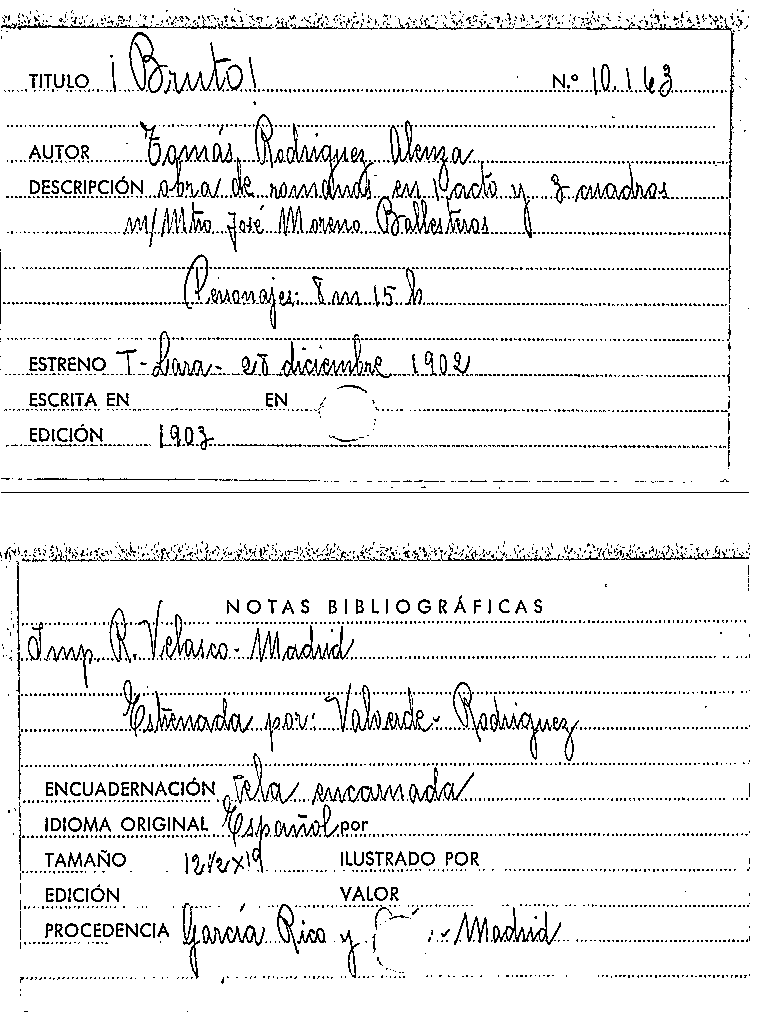 TITULO ¡Bruto! N.º 10.163
AUTOR Tomás Rodriguez Alenza
DESCRIPCIÓN obra de romanos en 1 acto y 3 cuadros
m/Mtro José Moreno Ballesteros
Personajes: 8 m 15 h
ESTRENO T-Lara- 28 diciembre 1902
ESCRITA EN EN
EDICIÓN 1903
NOTAS BIBLIOGRÁFICAS
Imp. R. Velasco- Madrid
Estrenada por: Valverde- Rodriguez
ENCUADERNACIÓN Tela encarnada
IDIOMA ORIGINAL Español por
TAMAÑO 12 1/2 x 19 ILUSTRADO POR
EDICIÓN VALOR
PROCEDENCIA García Rico y - Madrid